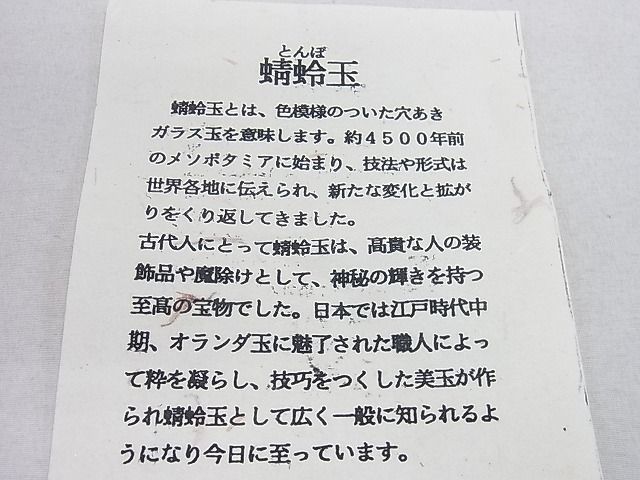 とんぼ
蜻蛉玉。
蜻蛉玉とは、色模様のついた穴あき
ガラス玉を意味します。約4500年前
のメソポタミアに始まり、技法や形式は
世界各地に伝えられ、新たな変化と拡が
りをくり返してきました。
古代人にとって蜻蛉玉は、高貴な人の装
飾品や魔除けとして、神秘の輝きを持つ
至高の宝物でした。日本では江戸時代中
期、オランダ玉に魅了された職人によっ
て粋を凝らし、技巧をつくした美玉が作
られ蜻蛉玉として広く一般に知られるよ
うになり今日に至っています。